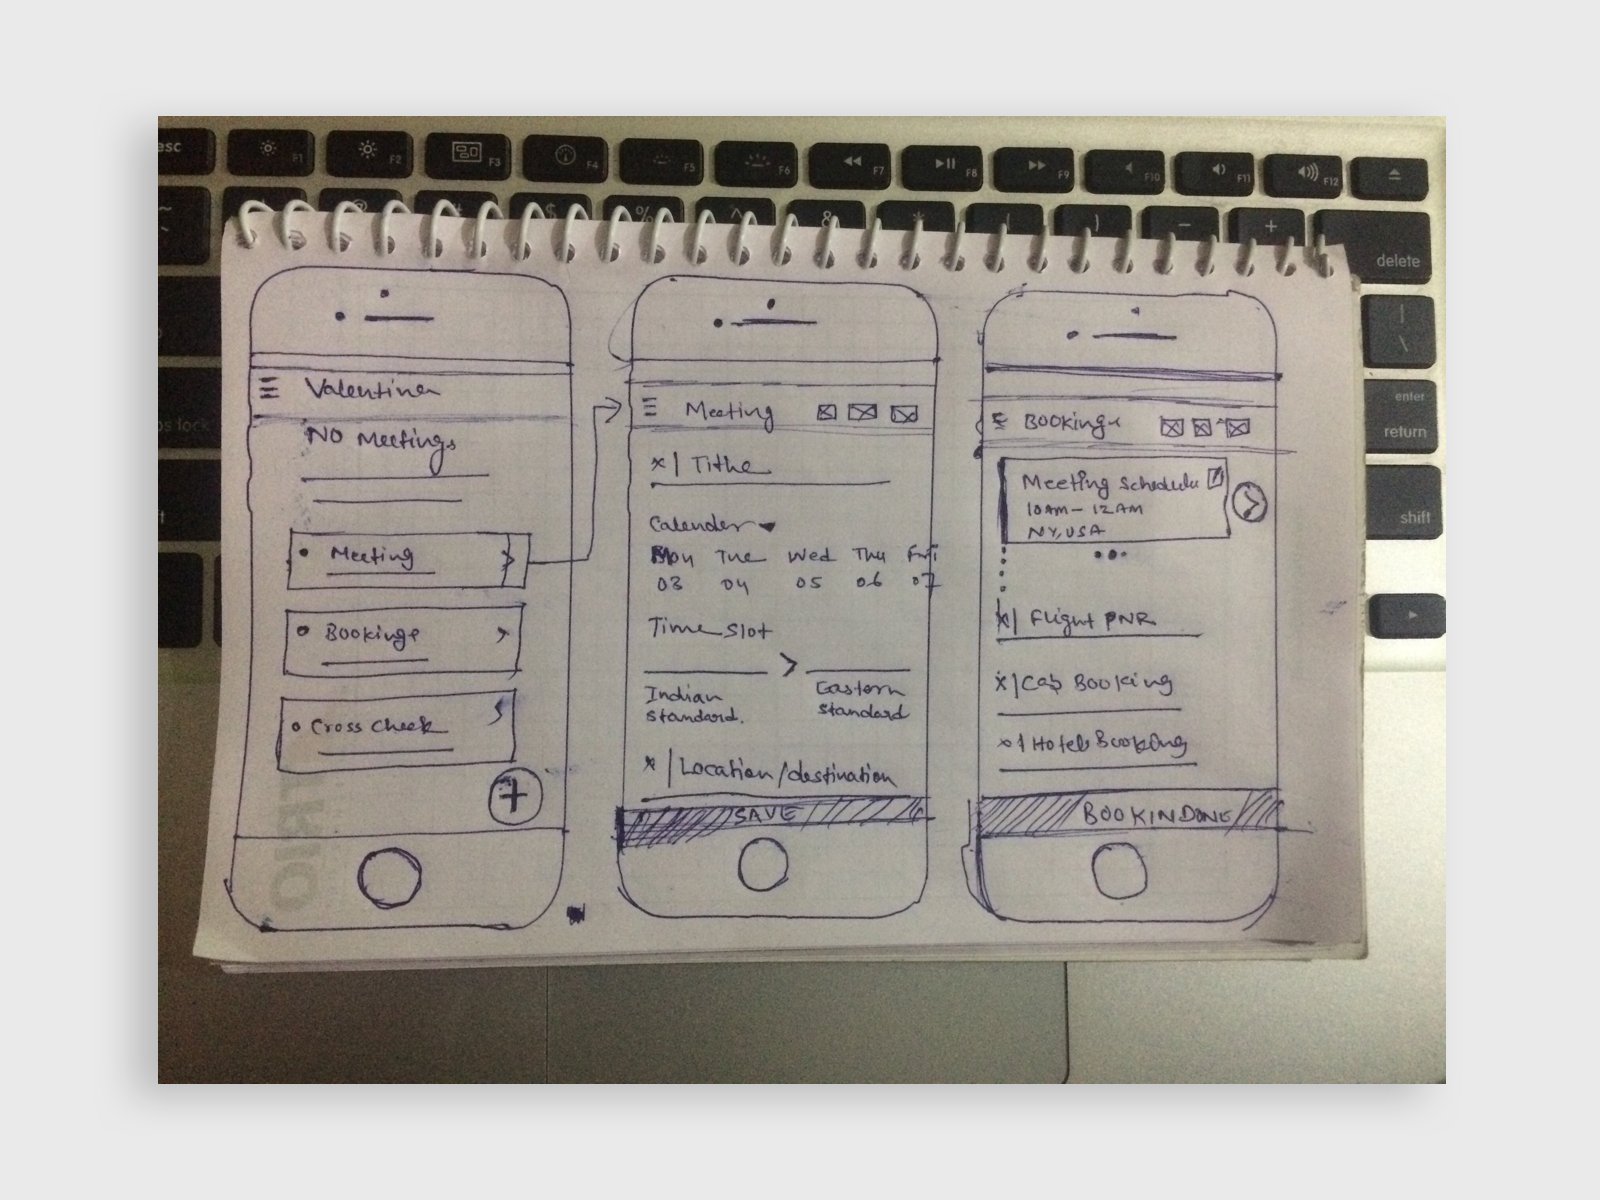 esc
F1
F2
F3
F4
F5
F6
F7
F8
F9
F10
F11
F12
~
@
$
%
^
&
*
(
)
−
+
delete
|
\
enter
return
shift
Valentina
NO Meetings
Meeting
Bookings
Cross Check
Meeting
x| Tithe
Calender
Mon Tue Wed Thu Fri
03 04 05 06 07
Time Slot
>
Indian Eastern
standard. standard
x| Location/destination
SAVE
Bookings
Meeting Schedule
10AM - 12AM
NY, USA
x| Flight PNR
x| Cab Booking
x| Hotel Booking
BOOKINDONE